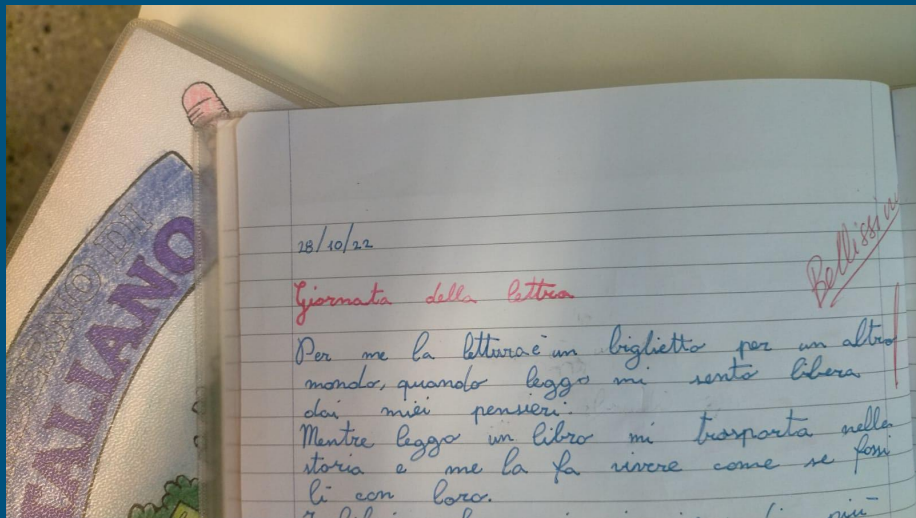 QUADERNO DI
ITALIANO
28/10/22
Bellissi
Giornata della lettra
Per me la lettura è un biglietto per un altro
mondo, quando leggo mi sento libera
dai miei pensieri.
Mentre leggo un libro mi trasporta nella
storia e me la fa vivere come se fossi
li con loro.
più